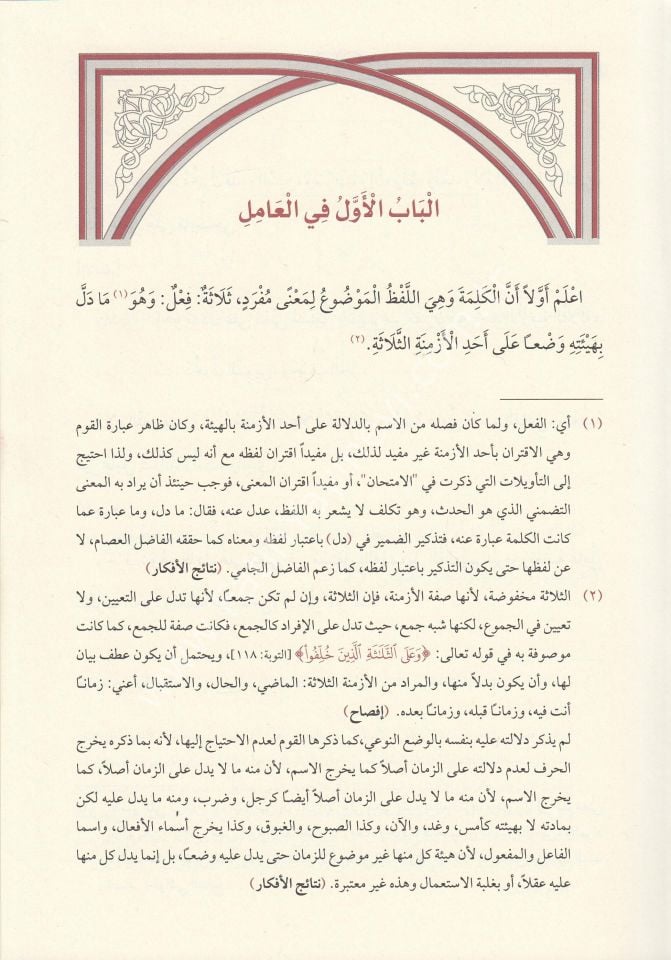 الْبَابُ الْأَوَّلُ فِي الْعَامِلِ
اعْلَمْ أَوَّلاً أَنَّ الْكَلِمَةَ وَهِيَ اللَّفْظُ الْمَوْضُوعُ لِمَعْنًى مُفْرَدٍ، ثَلَاثَةٌ: فِعْلٌ: وَهُوَ(١) مَا دَلَّ
بِهَيْئَتِهِ وَضْعـًا عَلَى أَحَدِ الْأَزْمِنَةِ الثَّلَاثَةِ.(٢)
(١) أي: الفعل، ولما كان فصله من الاسم بالدلالة على أحد الأزمنة بالهيئة، وكان ظاهر عبارة القوم
وهي الاقتران بأحد الأزمنة غير مفيد لذلك، بل مفيداً اقتران لفظه مع أنه ليس كذلك، ولذا احتيج
إلى التأويلات التي ذكرت في "الامتحان"، أو مفيداً اقتران المعنى، فوجب حينئذ أن يراد به المعنى
التضمني الذي هو الحدث، وهو تكلف لا يشعر به اللفظ، عدل عنه، فقال: ما دل، وما عبارة عما
كانت الكلمة عبارة عنه، فتذكير الضمير في (دل) باعتبار لفظه ومعناه كما حققه الفاضل العصام، لا
عن لفظها حتى يكون التذكير باعتبار لفظه، كما زعم الفاضل الجامي. (نتائج الأفكار)
(٢) الثلاثة مخفوضة، لأنها صفة الأزمنة، فإن الثلاثة، وإن لم تكن جمعـًا، لأنها تدل على التعيين، ولا
تعيين في الجموع، لكنها شبه جمع، حيث تدل على الإفراد كالجمع، فكانت صفة للجمع، كما كانت
موصوفة به في قوله تعالى: ﴿وَعَلَى ٱلثَّلَٰثَةِ ٱلَّذِينَ خُلِّفُوا۟﴾ [التوبة: ١١٨]، ويحتمل أن يكون عطف بيان
لها، وأن يكون بدلاً منها، والمراد من الأزمنة الثلاثة: الماضي، والحال، والاستقبال، أعني: زمانـًا
أنت فيه، وزمانـًا قبله، وزمانـًا بعده. (إفصاح)
لم يذكر دلالته عليه بنفسه بالوضع النوعي،كما ذكرها القوم لعدم الاحتياج إليها، لأنه بما ذكره يخرج
الحرف لعدم دلالته على الزمان أصلاً كما يخرج الاسم، لأن منه ما لا يدل على الزمان أصلاً، كما
يخرج الاسم، لأن منه ما لا يدل على الزمان أصلاً أيضـًا كرجل، وضرب، ومنه ما يدل عليه لكن
بمادته لا بهيئته كأمس، وغد، والآن، وكذا الصبوح، والغبوق، وكذا يخرج أسماء الأفعال، واسما
الفاعل والمفعول، لأن هيئة كل منها غير موضوع للزمان حتى يدل عليه وضعـًا، بل إنما يدل كل منها
عليه عقلاً، أو بغلبة الاستعمال وهذه غير معتبرة. (نتائج الأفكار)